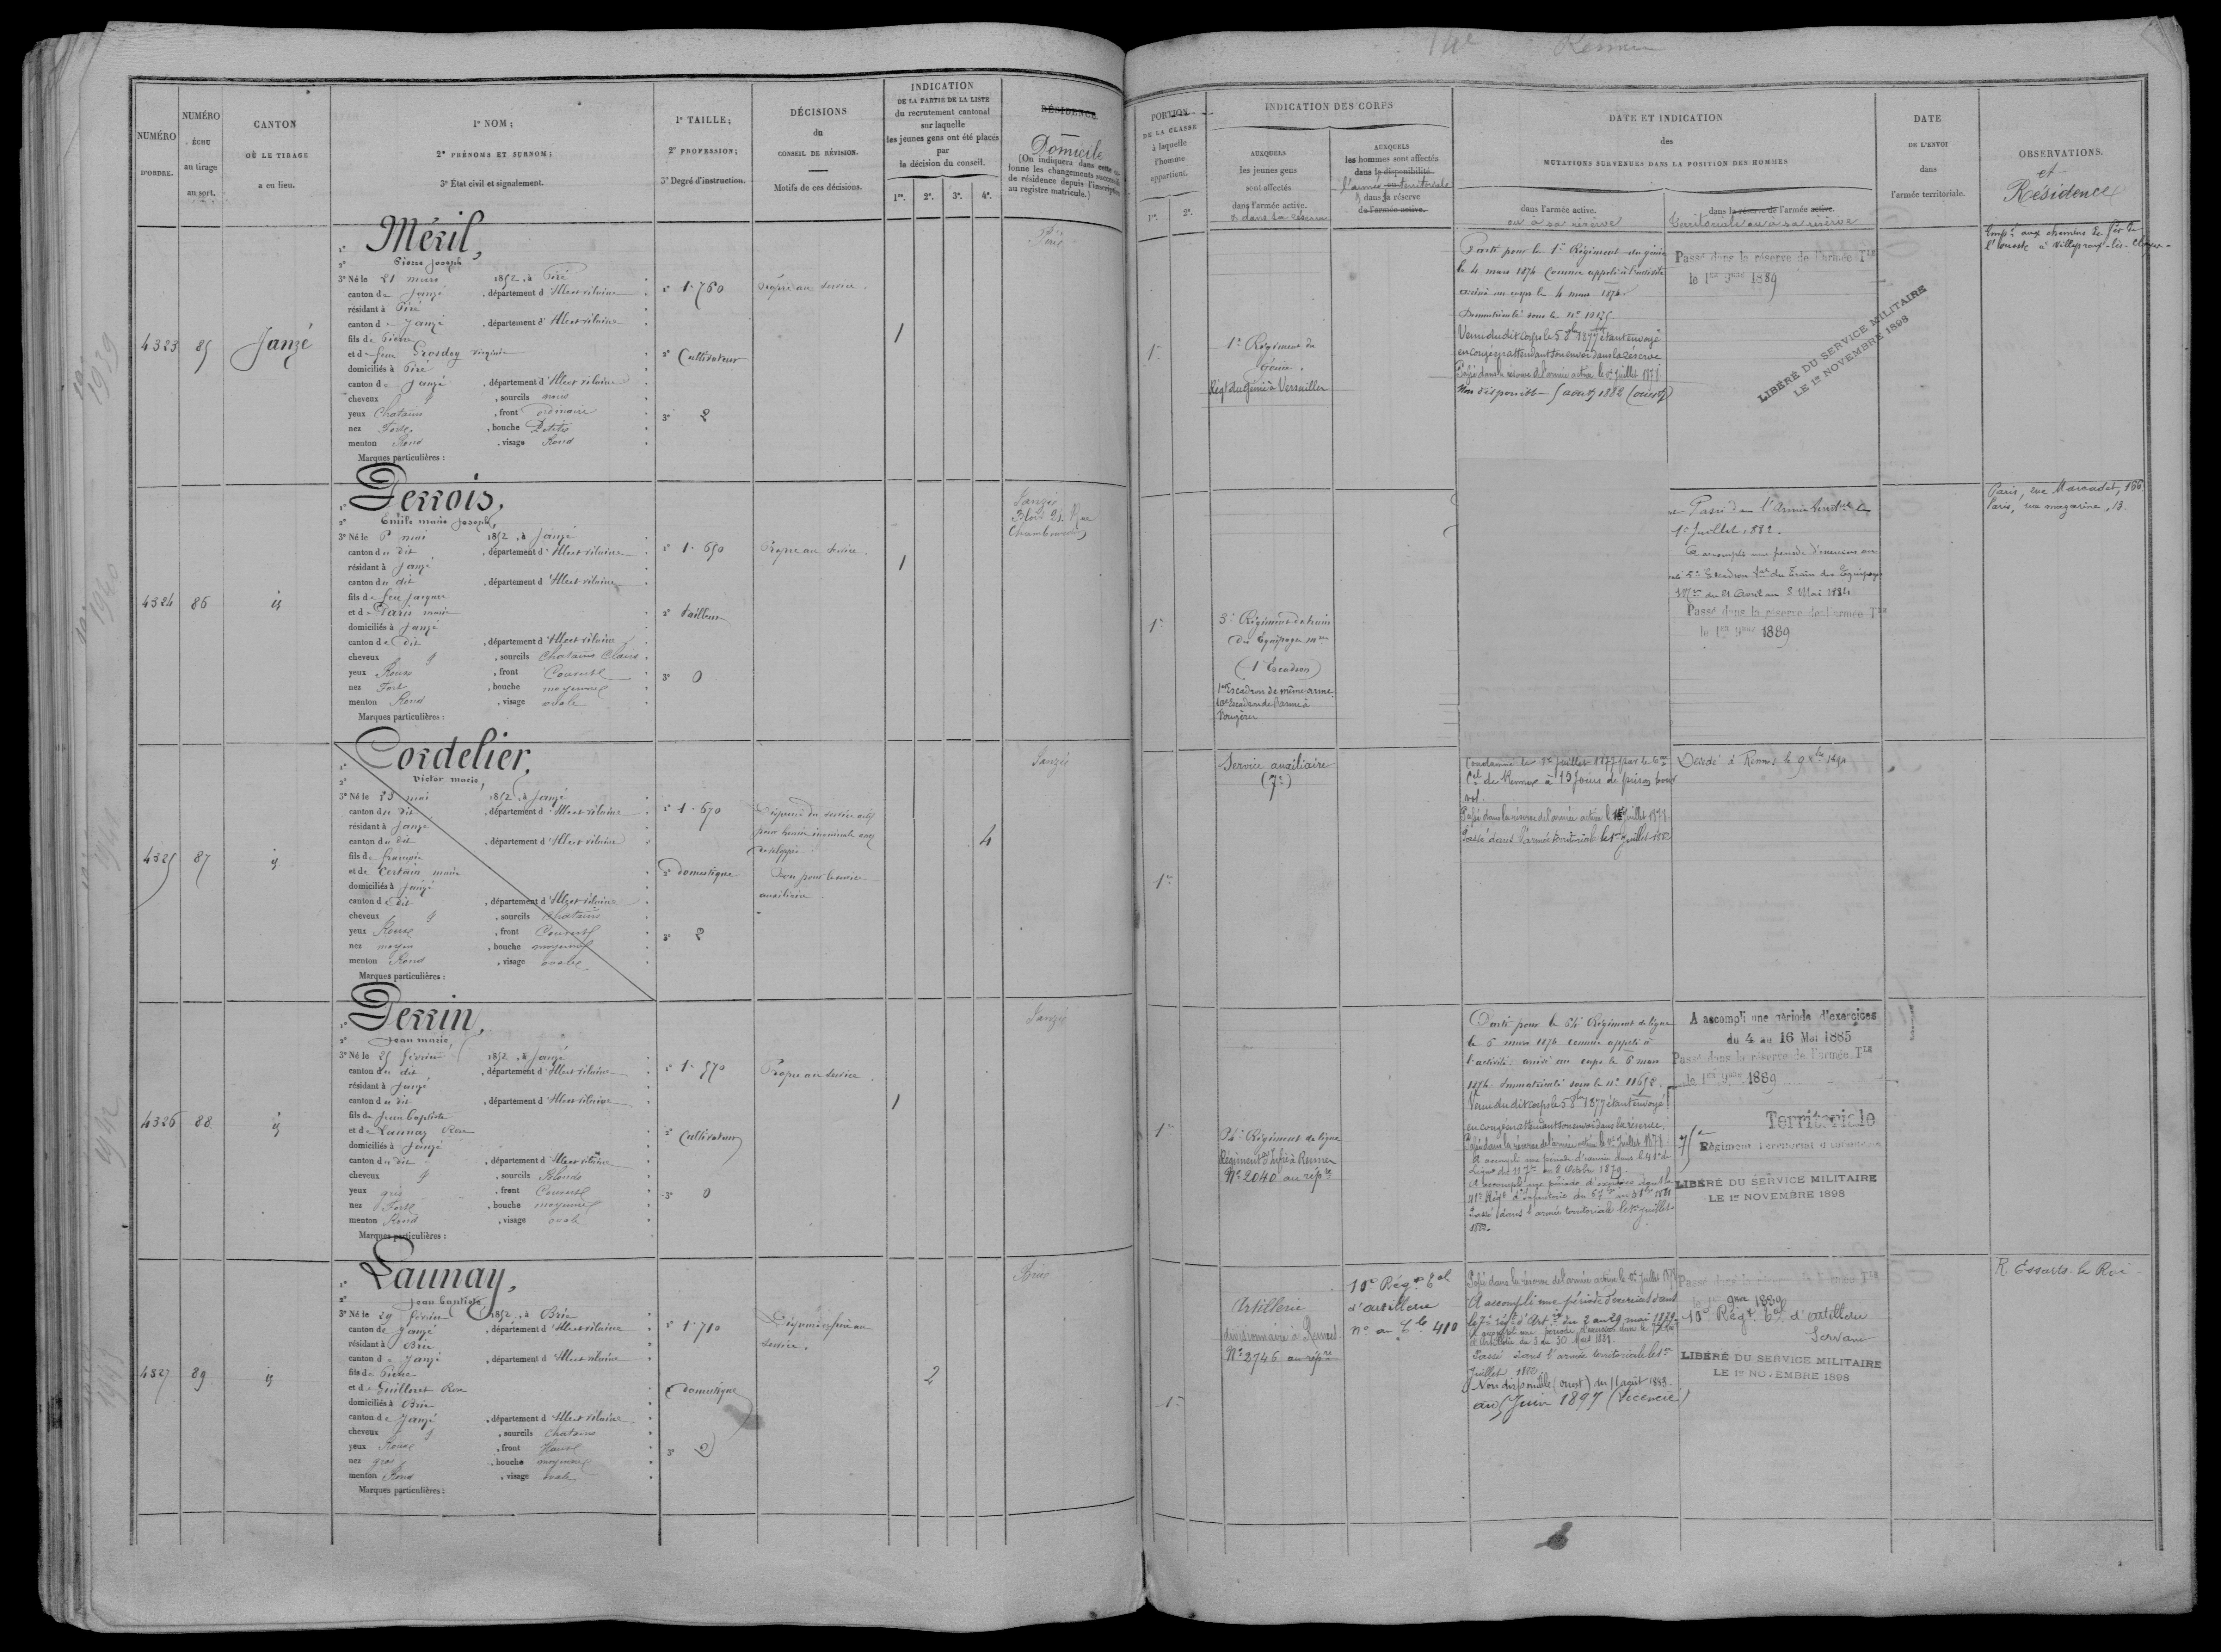 NUMÉRO
D'ORDRE.
NUMÉRO
ÉCHU
au tirage
au sort.
CANTON
OÙ LE TIRAGE
a eu lieu.
1° NOM;
2° PRÉNOMS ET SURNOM;
3° État civil et signalement.
1° TAILLE;
2° PROFESSION;
3° Degré d'instruction.
DÉCISIONS
du
CONSEIL DE RÉVISION.
Motifs de ces décisions.
INDICATION
DE LA PARTIE DE LA LISTE
du recrutement cantonal
sur laquelle
les jeunes gens ont été placés
par
la décision du conseil.
1re. 2e. 3e. 4e.
RÉSIDENCE
Domicile
(On indiquera dans cette co-
lonne les changements successifs
de résidence depuis l'inscription
au registre matricule.)
PORTION
DE LA CLASSE
à laquelle
l'homme
appartient.
1re. 2e.
INDICATION DES CORPS
AUXQUELS
les jeunes gens
sont affectés
dans l'armée active.
& dans la réserve
AUXQUELS
les hommes sont affectés
dans la disponibilité
l'armée territoriale
& dans la réserve
de l'armée active.
DATE ET INDICATION
des
MUTATIONS SURVENUES DANS LA POSITION DES HOMMES
dans l'armée active.
ou à sa réserve
dans la réserve de l'armée active.
territoriale ou à sa réserve
DATE
DE L'ENVOI
dans
l'armée territoriale.
OBSERVATIONS.
et
Résidence
4323 85 Janzé
1° Méril,
2° Pierre Joseph
3° Né le 21 mars 1852, à Piré
canton de Janzé, département d'Ille et vilaine
résidant à Piré
canton de Janzé, département d'Ille et vilaine
fils de Pierre
et de feue Grosdoy Virginie
domiciliés à Piré
canton de Janzé, département d'Ille et vilaine
cheveux g, sourcils noirs
yeux Chatains, front ordinaire
nez Fort, bouche Petite
menton Rond, visage Rond
Marques particulières :
1° 1.760
2° Cultivateur
3° 2
Propre au service.
1
Piré
1re
1er Régiment du
Génie.
Régt du Génie à Versailles
Parti pour le 1er Régiment du génie
le 4 mars 1874 comme appelé à l'activité
arrivé au corps le 4 mars 1874
Immatriculé sous le n°
Venu du dit corps le 5 8bre 1877 étant envoyé
en congé en attendant son envoi dans la réserve
Passé dans la réserve de l'armée active le 1er Juillet 1878
Non disponible 5 août 1882 (ouest)
Passé dans la réserve de l'armée Tle
le 1er 9bre 1889
LIBÉRÉ DU SERVICE MILITAIRE
LE 1er NOVEMBRE 1898
Empé aux chemins de fer de
l'ouest à Villepreux-les-Clayes
4324 86 id
1° Perrois,
2° Emile marie Joseph,
3° Né le 6 mai 1852, à Janzé
canton du dit, département d'Ille et vilaine
résidant à Janzé
canton du dit, département d'Ille et vilaine
fils de feu Jacques
et de Paris marie
domiciliés à Janzé
canton du dit, département d'Ille et vilaine
cheveux g, sourcils Chatains Clairs
yeux Roux, front Couvert
nez Fort, bouche moyenne
menton Rond, visage ovale
Marques particulières :
1° 1.650
2° tailleur
3° 0
Propre au service.
1
Janzé
1re
3e Régiment du train
des Equipages mres
(1er Escadron)
1er Escadron de même arme
10e Escadron de l'arme à
Fougères
Passé dans l'Armée territle le
1er Juillet 1882.
A accompli une période d'exercices au
Escadron du Train des Equipages
du 21 Avril au 3 Mai 1884
Passé dans la réserve de l'armée Tle
le 1er 9bre 1889
Paris, rue Marcadet, 166
Paris, rue mazarine, 13.
4325 87 id
1° Cordelier,
2° Victor marie,
3° Né le 25 mai 1852, à Janzé
canton du dit, département d'Ille et vilaine
résidant à Janzé
canton du dit, département d'Ille et vilaine
fils de françois
et de Certain marie
domiciliés à Janzé
canton du dit, département d'Ille et vilaine
cheveux g, sourcils Chatains
yeux Roux, front Couvert
nez moyen, bouche moyenne
menton Rond, visage ovale
Marques particulières :
1° 1.670
2° domestique
3° 2
Dispensé du service actif
pour hernie inguinale
développée
Bon pour le service
auxiliaire
4
Janzé
1re
Service auxiliaire
(7e)
Condamné le 1er juillet 1877 par le
de Rennes à 15 Jours de prison pour
vol.
Passé dans la réserve de l'armée active le 1er juillet 1878
Passé dans l'armée territoriale le 1er juillet 1882
Décédé à Rennes le 9 Xbre
4326 88 id
1° Perrin,
2° Jean marie,
3° Né le 25 février 1852, à Janzé
canton du dit, département d'Ille et vilaine
résidant à Janzé
canton du dit, département d'Ille et vilaine
fils de Jean baptiste
et de Launay Rose
domiciliés à Janzé
canton du dit, département d'Ille et vilaine
cheveux g, sourcils Blonds
yeux gris, front Couvert
nez Fort, bouche moyenne
menton Rond, visage ovale
Marques particulières :
1° 1.570
2° Cultivateur
3° 0
Propre au service.
1
Janzé
1re
Régiment de ligne
Régiment d'Infie à Rennes
N° 2040 au répre
Parti pour le 64e Régiment de ligne
le 6 mars 1874 comme appelé à
l'activité arrivé au corps le 6 mars
1874 Immatriculé sous le n° 11652.
Venu du dit corps le 5 8bre 1877 étant envoyé
en congé en attendant son envoi dans la réserve.
Passé dans la réserve de l'armée active le 1er Juillet 1878
A accompli une période d'exercices dans le 41e de
Ligne du 11 7bre au 8 Octobre 1879
A accompli une période d'exercices dans le
Régt d'Infanterie du
Passé dans l'armée territoriale le 1er juillet
1882.
A accompli une période d'exercices
du 4 au 16 Mai 1885
Passé dans la réserve de l'armée Tle
le 1er 9bre 1889
Territoriale
75e Régiment Territorial d'Infanterie
LIBÉRÉ DU SERVICE MILITAIRE
LE 1er NOVEMBRE 1898
4327 89 id
1° Launay,
2° Jean baptiste
3° Né le 29 février 1852, à Brie
canton de Janzé, département d'Ille et vilaine
résidant à Brie
canton de Janzé, département d'Ille et vilaine
fils de Pierre
et de Guilloret Rose
domiciliés à Brie
canton de Janzé, département d'Ille et vilaine
cheveux g, sourcils Chatains
yeux Roux, front Haut
nez gros, bouche moyenne
menton Rond, visage ovale
Marques particulières :
1° 1.710
2° domestique
3° 2
service.
2
Brie
1re
Artillerie
divisionnaire à Rennes
N° 2746 au répre
10e Régt Tal
d'artillerie
n° au 410
Passé dans la réserve de l'armée active le 1er Juillet 1878
A accompli une période d'exercices dans
le 7e régt d'Art. du 2 au 29 mai 1879
A accompli une période d'exercices dans le
d'artillerie du 3 au 30 1881
Passé dans l'armée territoriale le 1er
Juillet 1882
Non disponible (ouest) du 11 août 1883
au 5 Juin 1897 (licencié)
9bre 1889
10e Régt Tal d'artillerie
Servant
LIBÉRÉ DU SERVICE MILITAIRE
LE 1er NOVEMBRE 1898
R. Essarts-le Roi